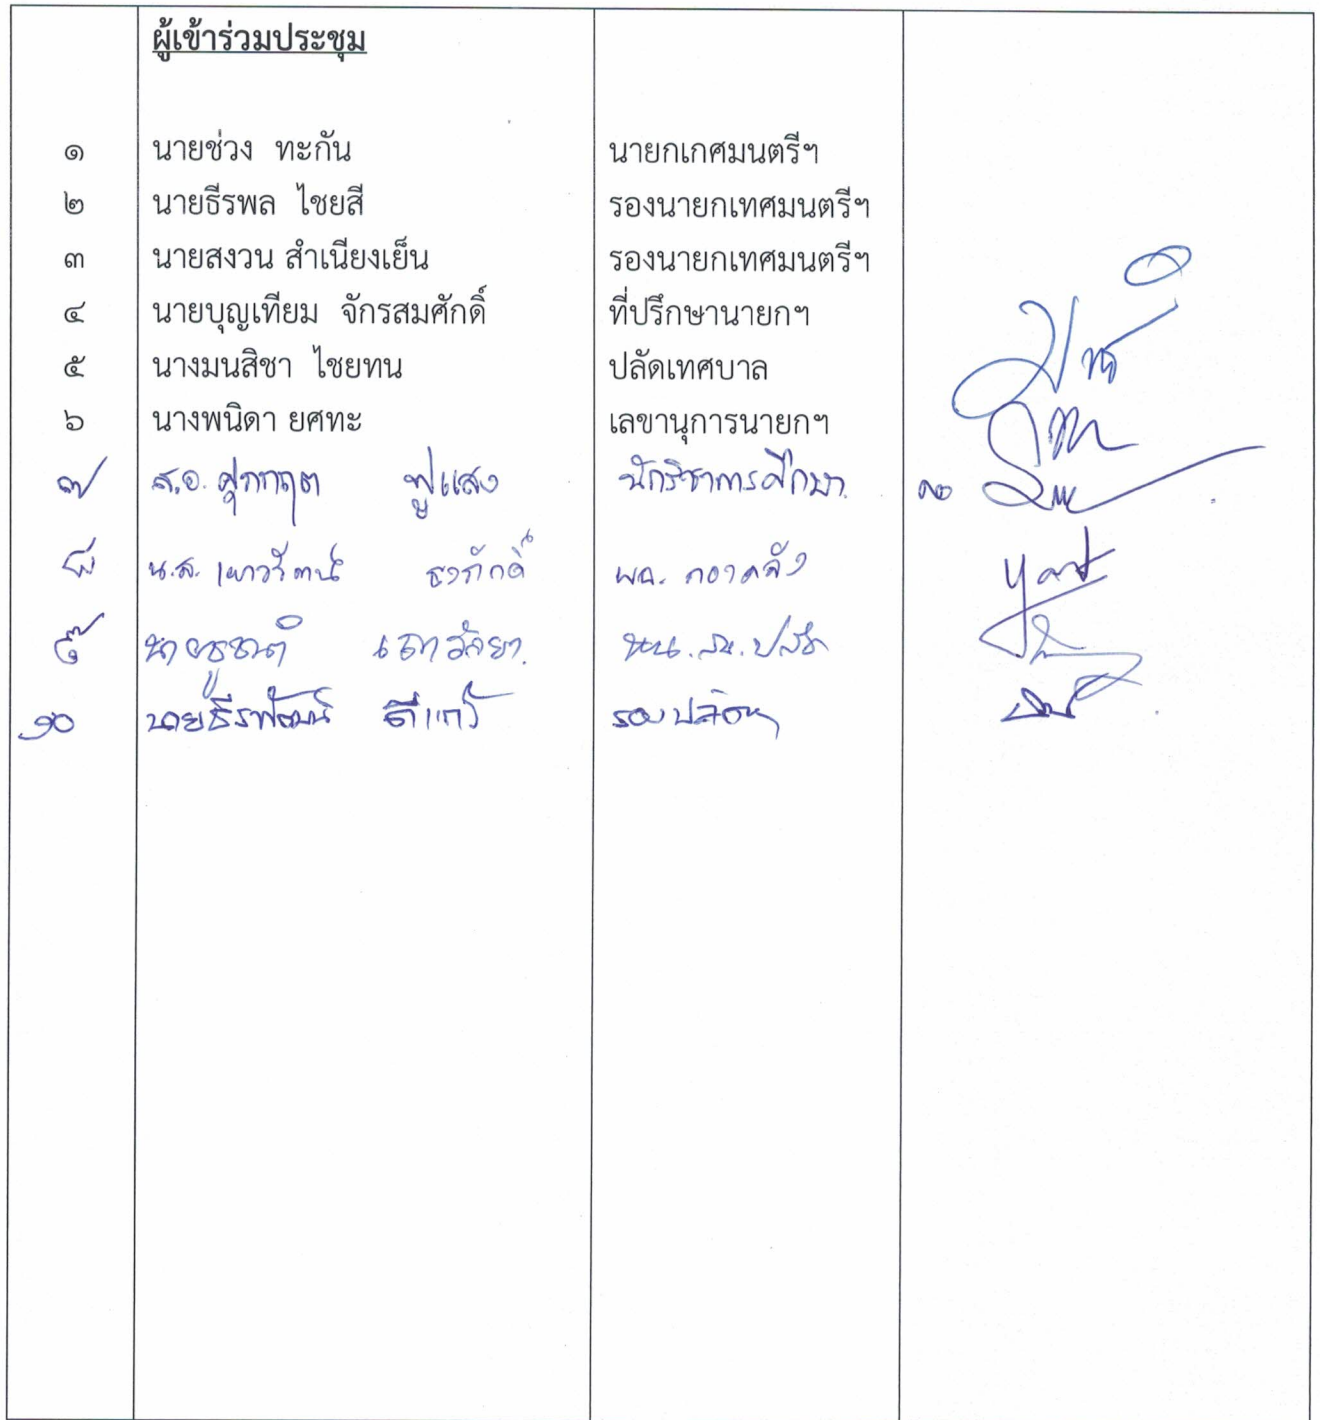 ผู้เข้าร่วมประชุม
๑ นายช่วง ทะกัน นายกเกศมนตรีฯ
๒ นายธีรพล ไชยสี รองนายกเทศมนตรีฯ
๓ นายสงวน สำเนียงเย็น รองนายกเทศมนตรีฯ
๔ นายบุญเทียม จักรสมศักดิ์ ที่ปรึกษานายกฯ
๕ นางมนสิชา ไชยทน ปลัดเทศบาล
๖ นางพนิดา ยศทะ เลขานุการนายกฯ
๗ ส.อ. ศุภกฤต ฟูแสง นักวิชาการศึกษา
๘ น.ส. เยาวรัตน์ ผอ. กองคลัง
๙
๑๐ นายธีรพัฒน์ ดีแก้ว รองปลัดฯ